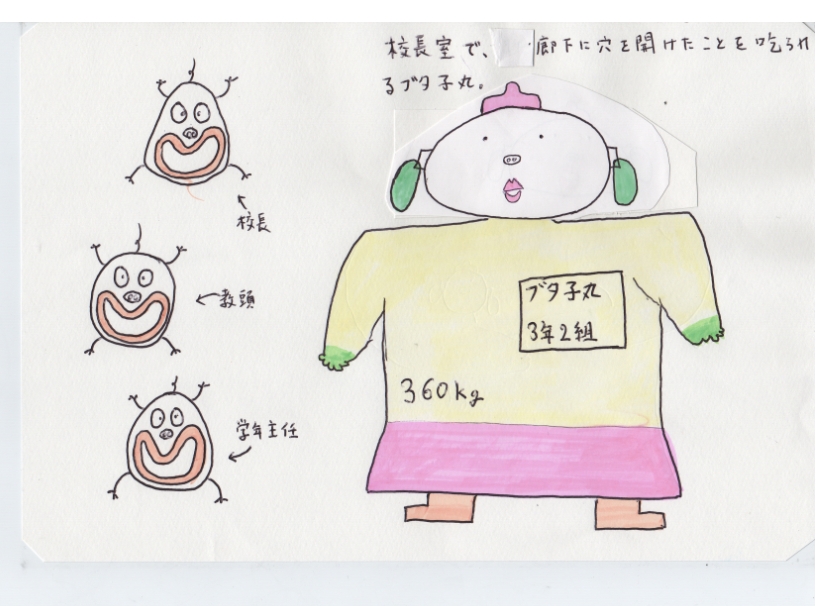 校長室で、廊下に穴を開けたことを叱られ
るブタ子丸。
校長
教頭
学年主任
ブタ子丸
3年2組
360kg